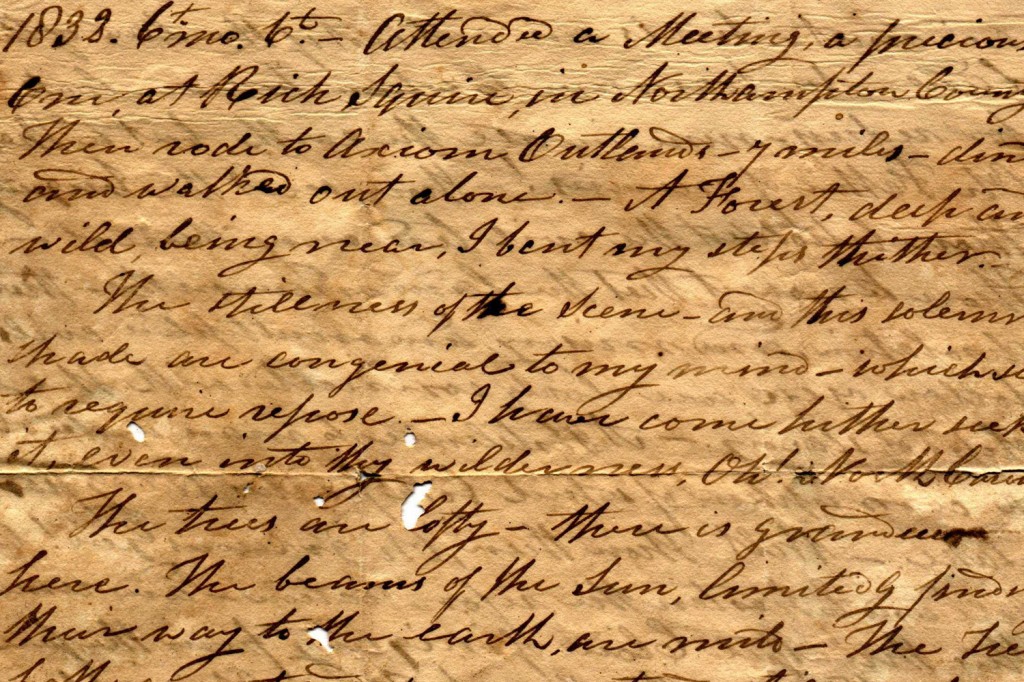 1832. 6th mo. 6th — Attended a Meeting, a precious
One, at Rich Square, in Northampton County
Then rode to Axiom Outlands — 7 miles — din
and walked out alone. — A Forest, deep an
wild, being near, I bent my steps thither. —
The stillness of the scene — and this solemn
shade are congenial to my mind — which se
to require repose. — I have come hither seek
it, even into thy wilderness, Oh! North Caro
The trees are lofty — there is grandeur
here. The beams of the Sun, limitedly find
their way to the earth, are mild — The